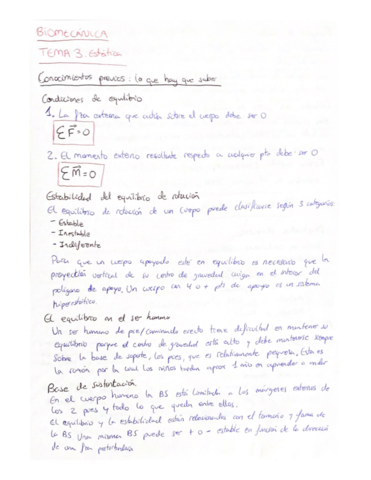 BIOMECÁNICA
TEMA 3. Estática
Conocimientos previos: lo que hay que saber
Condiciones de equilibrio
1. La fza externa que actúa sobre el cuerpo debe ser 0
ΣF=0
2. El momento externo resultante respecto a cualquier pto debe ser 0
ΣM=0
Estabilidad del equilibrio de rotación
El equilibrio de rotación de un cuerpo puede clasificarse según 3 categorías
- Estable
- Inestable
- Indiferente
Para que un cuerpo apoyado esté en equilibrio es necesario que la
proyección vertical de su centro de gravedad caiga en el interior del
polígono de apoyo. Un cuerpo con 4 o + pts de apoyo es un sistema
hiperestático.
El equilibrio en el ser humano
Un ser humano de pie/caminando erecto tiene dificultad en mantener su
equilibrio porque el centro de gravedad está alto y debe mantenerse siempre
sobre la base de soporte, los pies, que es relativamente pequeña. Esta es
la razón por la cual los niños tardan aprox 1 año en aprender a andar
Base de sustentación
En el cuerpo humano la BS está limitada a los márgenes externos de
los 2 pies y todo lo que queda entre ellos.
El equilibrio y la estabilidad están relacionados con el tamaño y forma de
la BS. Una misma BS puede ser + o - estable en función de la dirección
de una fza perturbadora